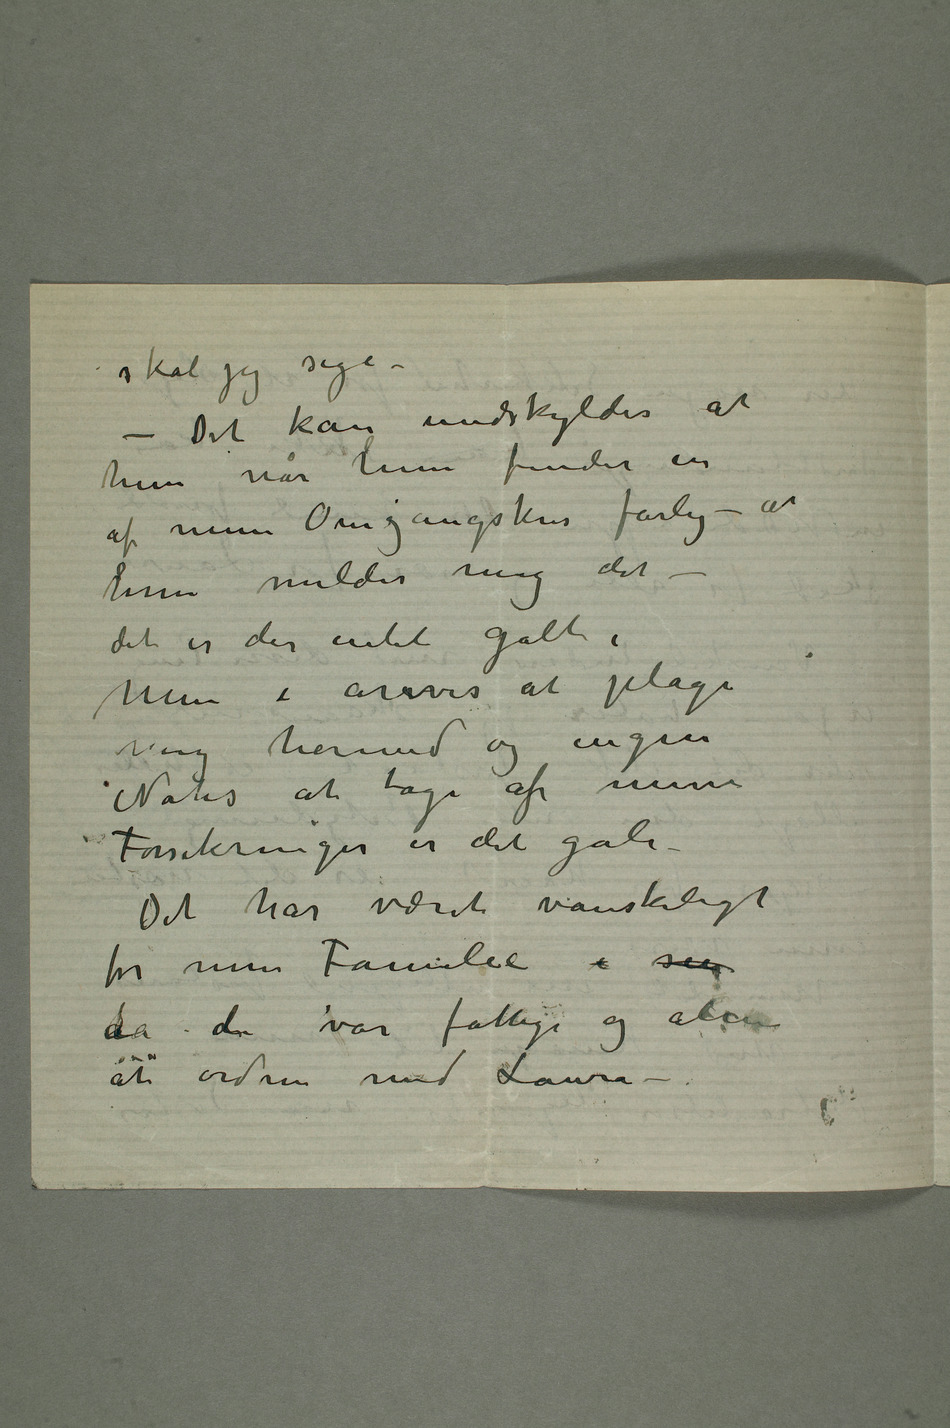 skal jeg sige –
– Det kan undskyldes at
hun når hun finder en
af min Omgangskres farlig – at
hun melder mig det –
det er der intet galt i
Men i aarevis at plage
mig hermed og ingen
Notis at tage af mine
Forsikringer er det gale –
Det har været vanskeligt
for min Familie i
da de var fattige og alene
at ordne med Laura –